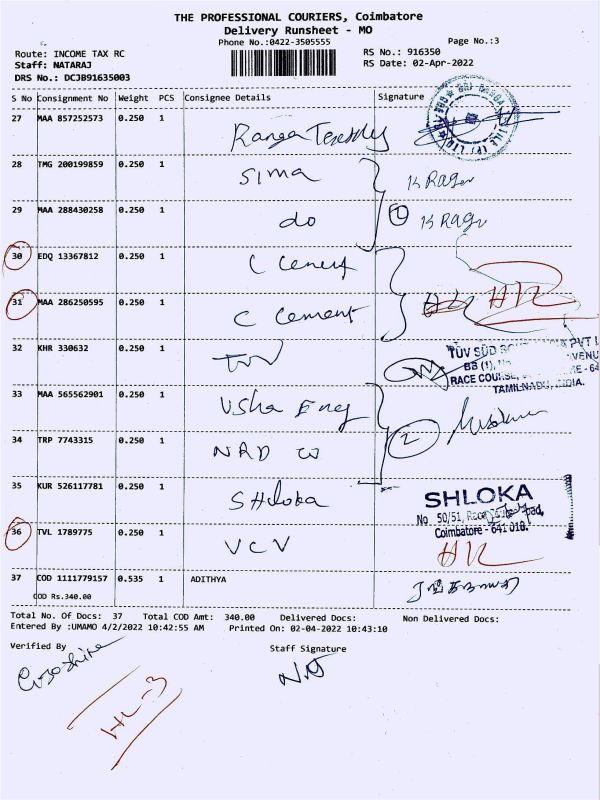 THE PROFESSIONAL COURIERS, Coimbatore
Delivery Runsheet - MO
Phone No.:0422-3505555
Page No.:3
Route: INCOME TAX RC
RS No.: 916350
Staff: NATARAJ
RS Date: 02-Apr-2022
DRS No.: DCJB91635003
S No Consignment No Weight PCS Consignee Details Signature
27 MAA 857252573 0.250 1 Ranga
28 TMG 200199859 0.250 1 Sima K Ragu
29 MAA 288430258 0.250 1 do 2 K Ragu
30 EDQ 13367812 0.250 1 C Cement
31 MAA 286250595 0.250 1 C Cement HR
32 KHR 330632 0.250 1 TUV
TÜV SÜD PVT
BB (1), VENU
RACE COURSE, - 64
TAMILNADU, INDIA.
33 MAA 565562901 0.250 1 Usha Eng
34 TRP 7743315 0.250 1 NRD W 2
35 KUR 526117781 0.250 1 SHloka
SHLOKA
No. 50/51, Race Road,
Coimbatore - 641 018.
36 TVL 1789775 0.250 1 VCV HR
37 COD 1111779157 0.535 1 ADITHYA
COD Rs.340.00
Total No. Of Docs: 37 Total COD Amt: 340.00 Delivered Docs: Non Delivered Docs:
Entered By :UMAMO 4/2/2022 10:42:55 AM Printed On: 02-04-2022 10:43:10
Verified By
Staff Signature
HL-3